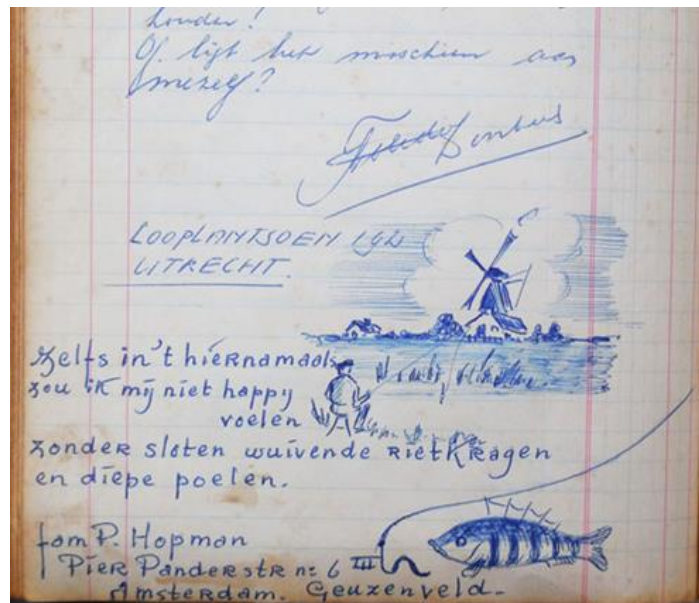 houder!
Of ligt het misschien aan
mezelf?
LOOPLANTSOEN 192
UTRECHT.
Zelfs in 't hiernamaals
zou ik mij niet happy
voelen
zonder sloten wuivende rietkragen
en diepe poelen.
fam P. Hopman
Pier Panderstr n: 6 III
Amsterdam. Geuzenveld.